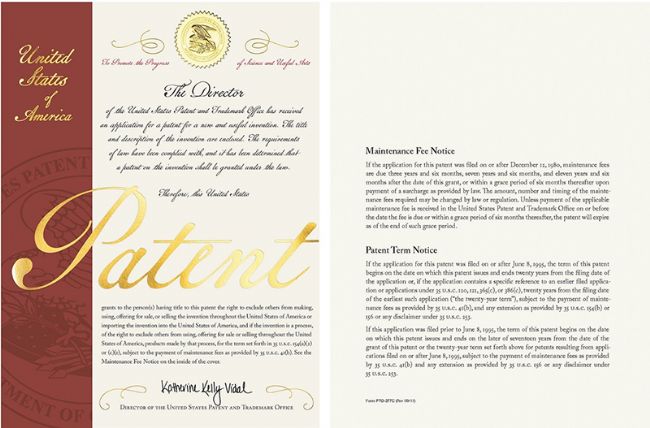 United
States
of
America
To Promote the Progress of Science and Useful Arts
The Director
of the United States Patent and Trademark Office has received
an application for a patent for a new and useful invention. The title
and description of the invention are enclosed. The requirements
of law have been complied with, and it has been determined that
a patent on the invention shall be granted under the law.
Therefore, this United States
Patent
grants to the person(s) having title to this patent the right to exclude others from making,
using, offering for sale, or selling the invention throughout the United States of America or
importing the invention into the United States of America, and if the invention is a process,
of the right to exclude others from using, offering for sale or selling throughout the United
States of America, products made by that process, for the term set forth in 35 U.S.C. 154(a)(2)
or (c)(1), subject to the payment of maintenance fees as provided by 35 U.S.C. 41(b). See the
Maintenance Fee Notice on the inside of the cover.
Katherine Kelly Vidal
Director of the United States Patent and Trademark Office
Maintenance Fee Notice
If the application for this patent was filed on or after December 12, 1980, maintenance fees
are due three years and six months, seven years and six months, and eleven years and six
months after the date of this grant, or within a grace period of six months thereafter upon
payment of a surcharge as provided by law. The amount, number and timing of the mainte-
nance fees required may be changed by law or regulation. Unless payment of the applicable
maintenance fee is received in the United States Patent and Trademark Office on or before
the date the fee is due or within a grace period of six months thereafter, the patent will expire
as of the end of such grace period.
Patent Term Notice
If the application for this patent was filed on or after June 8, 1995, the term of this patent
begins on the date on which this patent issues and ends twenty years from the filing date of
the application or, if the application contains a specific reference to an earlier filed applica-
tion or applications under 35 U.S.C. 120, 121, 365(c), or 386(c), twenty years from the filing date
of the earliest such application ("the twenty-year term"), subject to the payment of mainte-
nance fees as provided by 35 U.S.C. 41(b), and any extension as provided by 35 U.S.C. 154(b) or
156 or any disclaimer under 35 U.S.C. 253.
If this application was filed prior to June 8, 1995, the term of this patent begins on the date
on which this patent issues and ends on the later of seventeen years from the date of the
grant of this patent or the twenty-year term set forth above for patents resulting from appli-
cations filed on or after June 8, 1995, subject to the payment of maintenance fees as provided
by 35 U.S.C. 41(b) and any extension as provided by 35 U.S.C. 156 or any disclaimer under
35 U.S.C. 253.